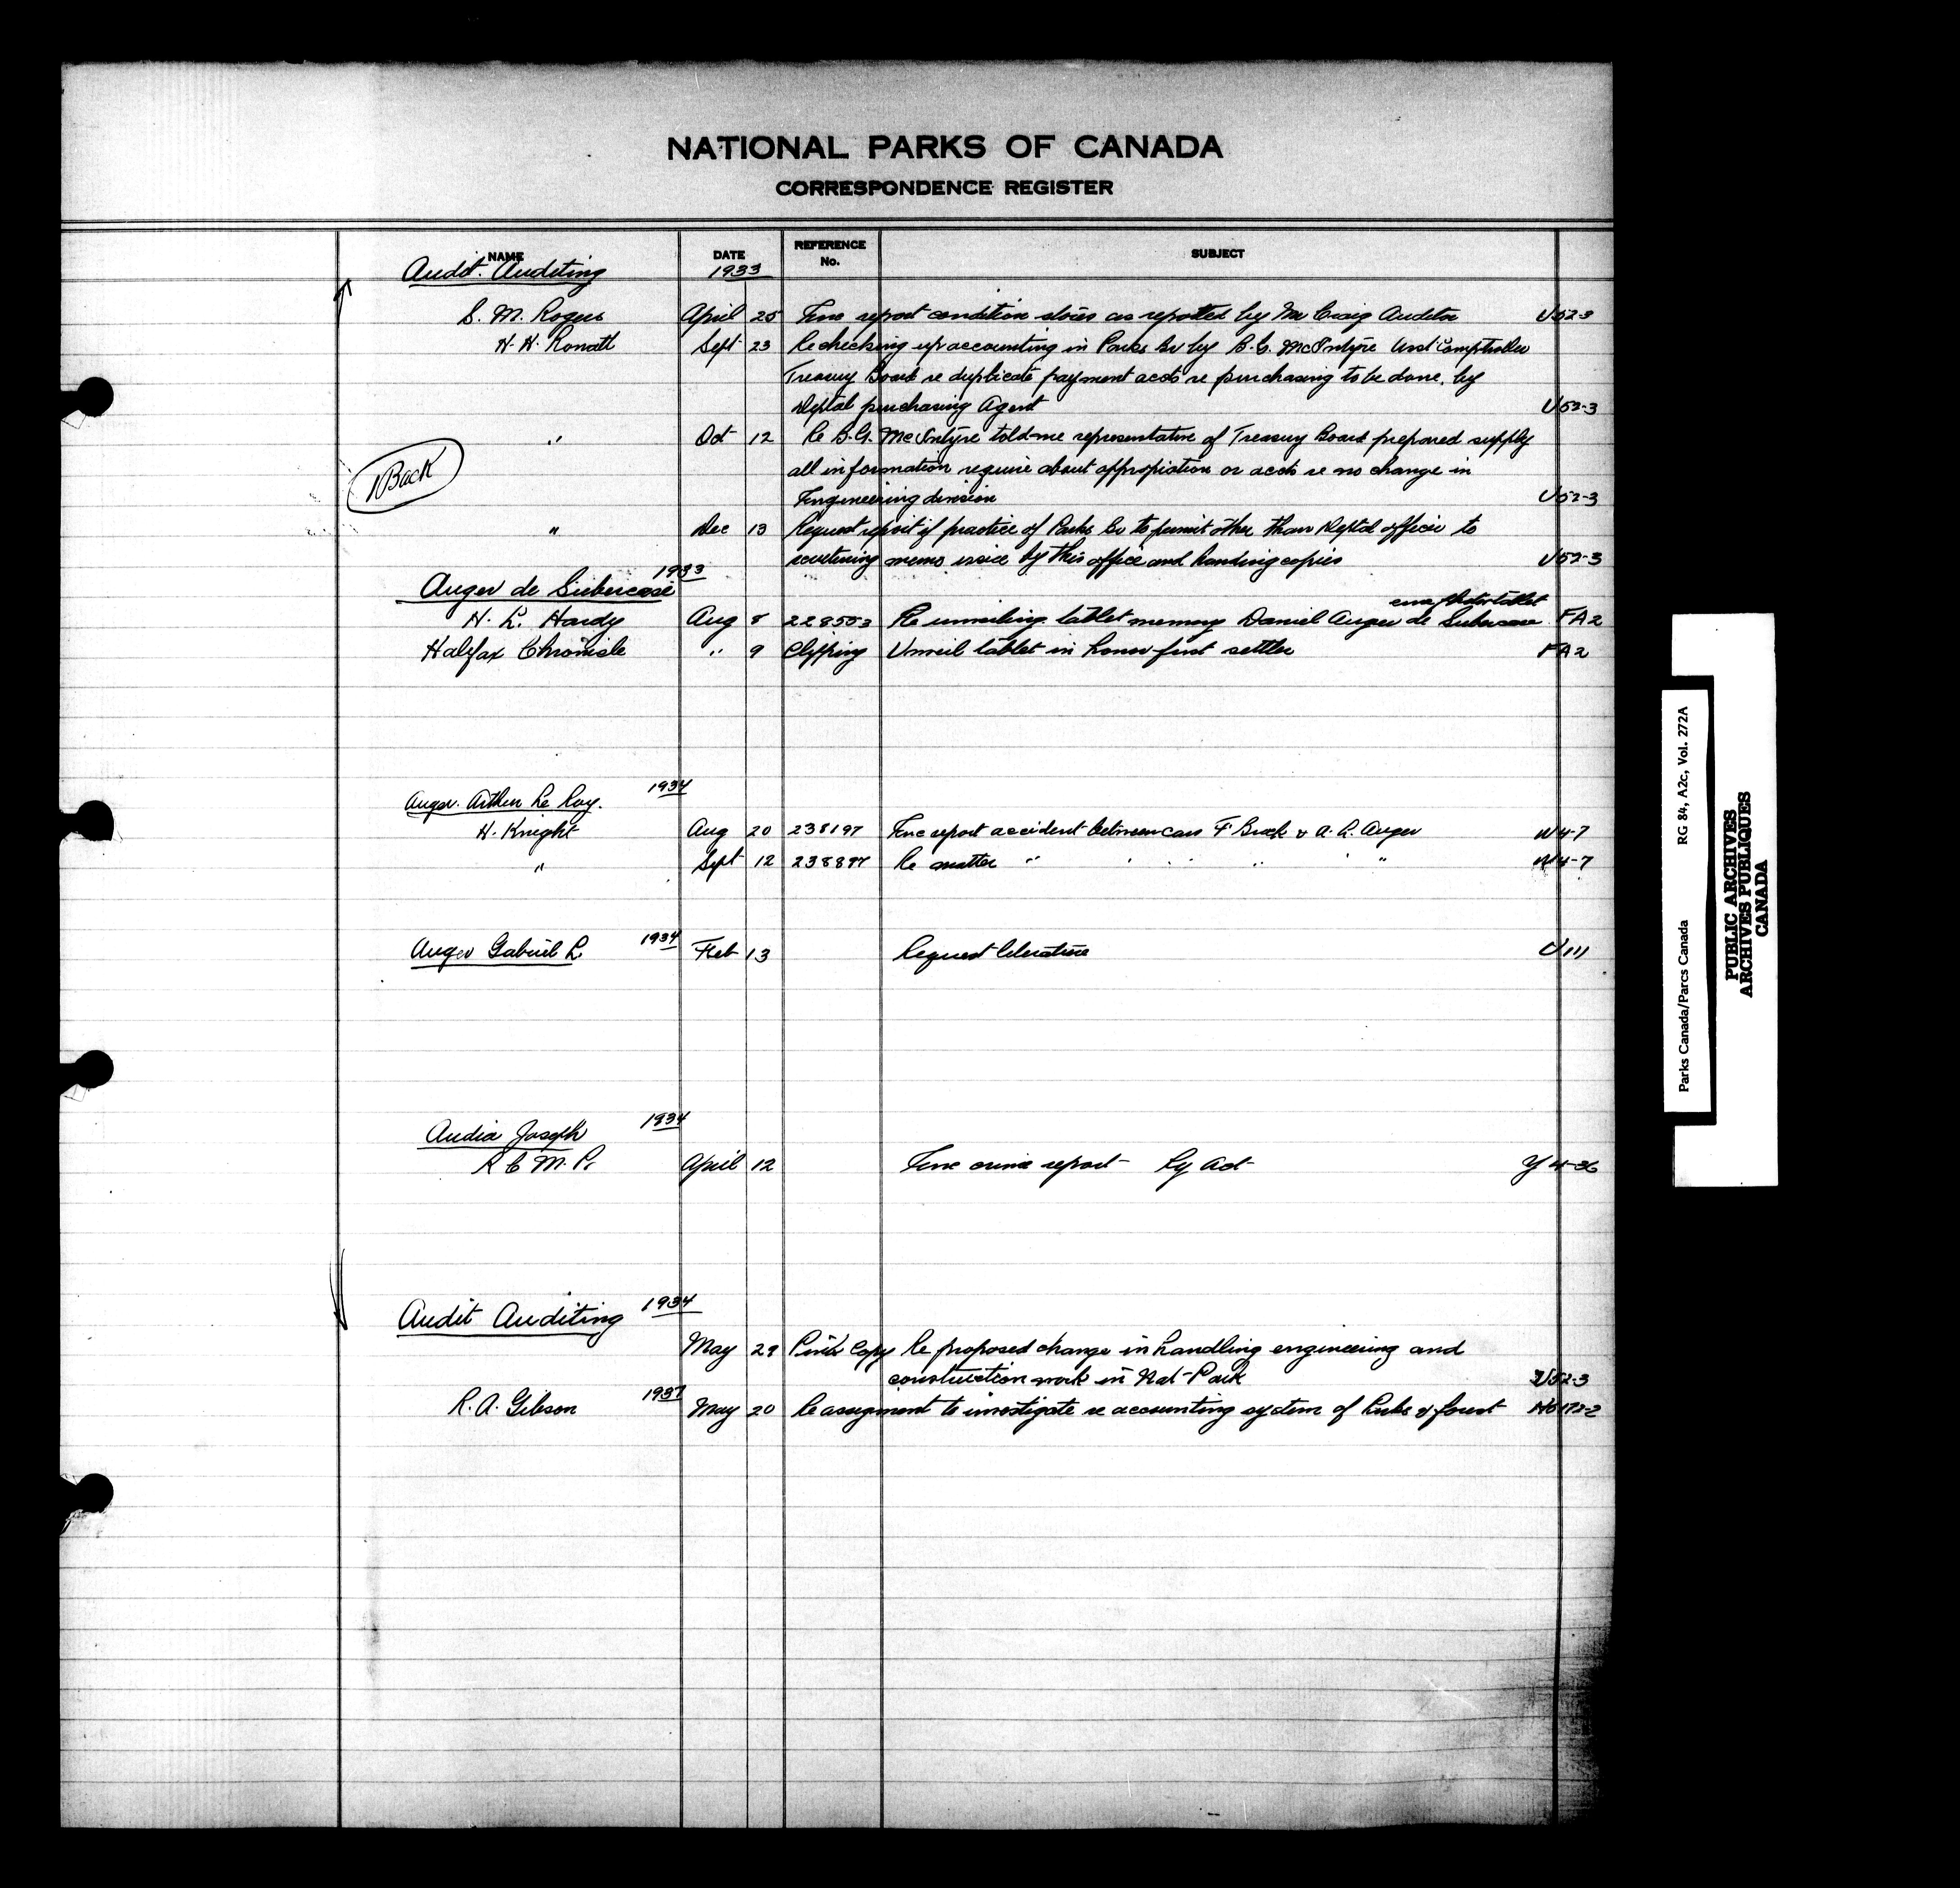 NATIONAL PARKS OF CANADA
CORRESPONDENCE REGISTER
NAME DATE REFERENCE No. SUBJECT
Audit. Auditing 1933
S. M. Rogers April 25 Enc report condition stores as reported by Mr Craig Auditor U52-3
H. H. Sept 23 Re checking up accounting in Parks Br by B.G. McIntyre Comptroller
Treasury Board re duplicate payment accts re purchasing to be done by
Deptal purchasing Agent U52-3
" Oct 12 Re B.G. McIntyre told me representative of Treasury Board prepared supply
all information require about appropiation or accts re no change in
Back
Engineering division U52-3
" Dec 13 Request report if practice of Parks Br to permit other than Deptal officer to
memo issue by this office and handing copies U52-3
Auger de Subercase 1933
H. L. Hardy Aug 8 228503 Re unveiling tablet memory Daniel Auger de Subercase FA2
Halifax Chronicle " 9 Clipping Unveil tablet in honor first settler FA2
Auger. Arthur Le Roy. 1934
H. Knight Aug 20 238197 Enc report accident between cars F. Brock & A. L. Auger W4-7
" Sept 12 Re matter " " " " " W4-7
Auger Gabriel L. 1934 Feb 13 Request literature U111
Audia Joseph 1934
R C M. P. April 12 Enc crime report - Ry Act - Y4-36
Audit Auditing 1934
May 29 Pink Copy Re proposed change in handling engineering and
construction work in Nat-Park U52-3
R. A. Gibson 1937 May 20 Re assignment to investigate re accounting system of Parks & forest
Parks Canada/Parcs Canada RG 84, A2c, Vol. 272A
PUBLIC ARCHIVES
ARCHIVES PUBLIQUES
CANADA